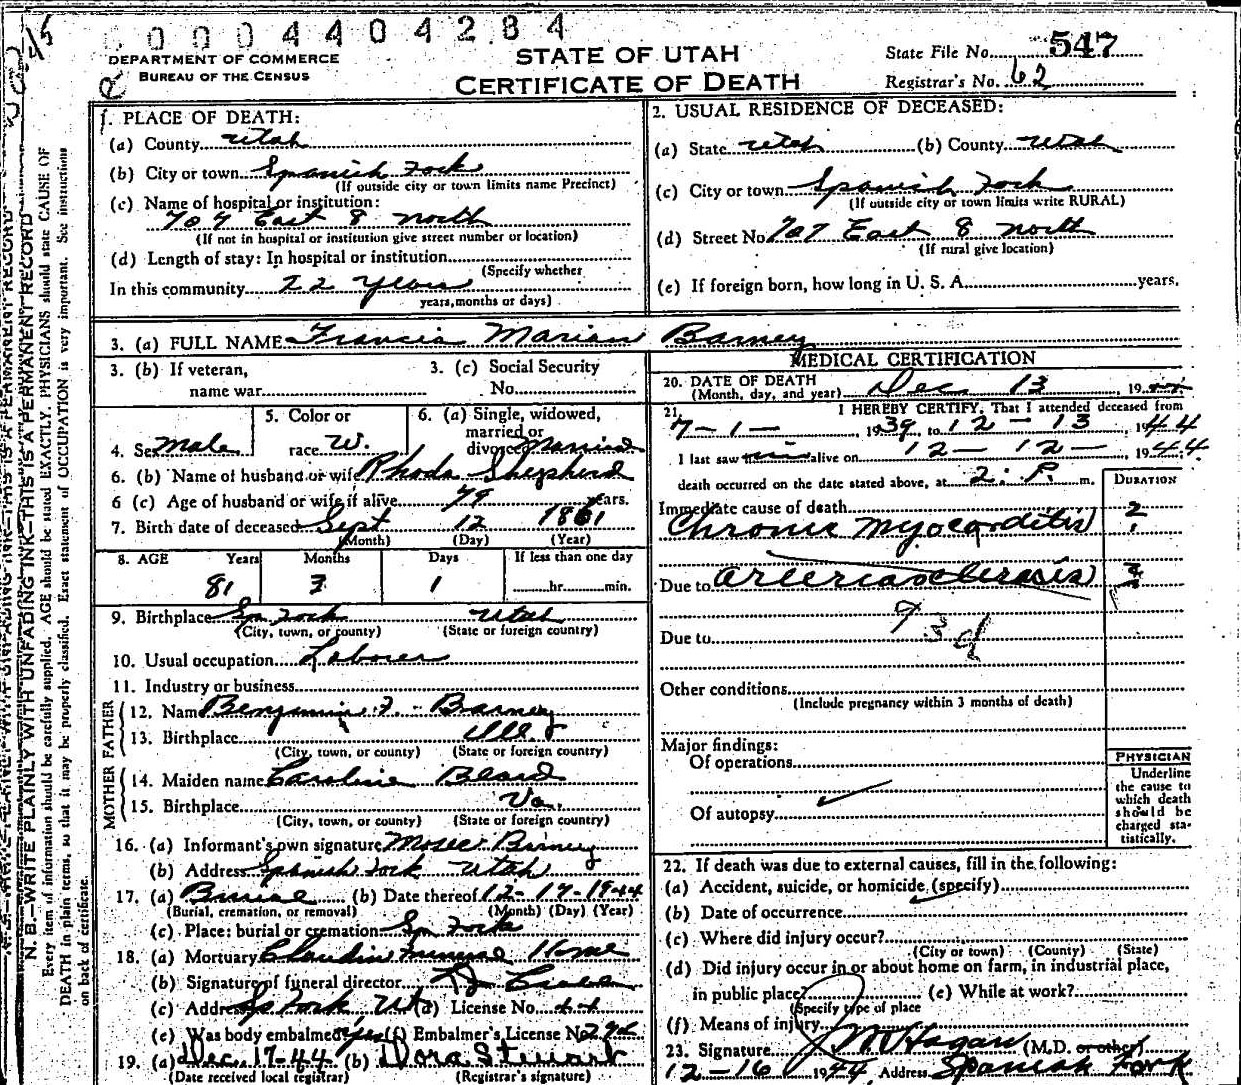 0000 4404284
DEPARTMENT OF COMMERCE
BUREAU OF THE CENSUS
STATE OF UTAH
CERTIFICATE OF DEATH
State File No. 547
Registrar's No. 62
N. B.—WRITE PLAINLY WITH UNFADING INK—THIS IS A PERMANENT RECORD
Every item of information should be carefully supplied. AGE should be stated EXACTLY. PHYSICIANS should state CAUSE OF
DEATH in plain terms, so that it may be properly classified. Exact statement of OCCUPATION is very important. See instructions
on back of certificate.
1. PLACE OF DEATH:
(a) County Utah
(b) City or town Spanish Fork
(If outside city or town limits name Precinct)
(c) Name of hospital or institution:
707 East 8 North
(If not in hospital or institution give street number or location)
(d) Length of stay: In hospital or institution
(Specify whether
In this community 22 years
years, months or days)
2. USUAL RESIDENCE OF DECEASED:
(a) State Utah (b) County Utah
(c) City or town Spanish Fork
(If outside city or town limits write RURAL)
(d) Street No. 707 East 8 North
(If rural give location)
(e) If foreign born, how long in U. S. A. years.
3. (a) FULL NAME Francis Marian Barney
3. (b) If veteran,
name war
3. (c) Social Security
No.
4. Sex Male
5. Color or
race W.
6. (a) Single, widowed,
married or
divorced Married
6. (b) Name of husband or wife Rhoda Shepherd
6 (c) Age of husband or wife if alive 79 years.
7. Birth date of deceased Sept 12 1861
(Month) (Day) (Year)
8. AGE Years Months Days If less than one day
81 3 1 hr. min.
9. Birthplace Sp. Fork Utah
(City, town, or county) (State or foreign country)
10. Usual occupation Laborer
11. Industry or business
FATHER
12. Name Benjamin F. Barney
13. Birthplace Ill
(City, town, or county) (State or foreign country)
MOTHER
14. Maiden name Caroline Beard
15. Birthplace Va.
(City, town, or county) (State or foreign country)
16. (a) Informant's own signature Moses Barney
(b) Address Spanish Fork Utah
17. (a) Burial (b) Date thereof 12-17-1944
(Burial, cremation, or removal) (Month) (Day) (Year)
(c) Place: burial or cremation Sp. Fork
18. (a) Mortuary Claudin Funeral Home
(b) Signature of funeral director
(c) Address Sp Fork Ut (d) License No. 44
(e) Was body embalmed? Yes (f) Embalmer's License No.
19. (a) Dec 17-44 (b) Dora Stewart
(Date received local registrar) (Registrar's signature)
MEDICAL CERTIFICATION
20. DATE OF DEATH
(Month, day, and year) Dec 13, 1944
21. I HEREBY CERTIFY, That I attended deceased from
7-1-, 1939, to 12-13, 1944
I last saw him alive on 12-12-, 1944.
death occurred on the date stated above, at 2: P. m.
DURATION
Immediate cause of death
Chronic Myocarditis
Due to Arteriosclerosis
93d
Due to
Other conditions
(Include pregnancy within 3 months of death)
Major findings:
Of operations
Of autopsy
PHYSICIAN
Underline
the cause to
which death
should be
charged sta-
tistically.
22. If death was due to external causes, fill in the following:
(a) Accident, suicide, or homicide (specify)
(b) Date of occurrence
(c) Where did injury occur?
(City or town) (County) (State)
(d) Did injury occur in or about home on farm, in industrial place,
in public place? (e) While at work?
(Specify type of place
(f) Means of injury
23. Signature J M Hagan (M.D. or other)
12-16 1944 Address Spanish Fork